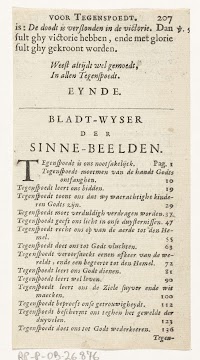 VOOR TEGENSPOEDT. 207
is: De doodt is verslonden in de victorie. Dan
sult ghy victorie hebben, ende met glorie
sult ghy gekroont worden.
Weest altijdt wel gemoedt,
In allen Tegenspoedt.
EYNDE.
BLADT-WYSER
DER
SINNE-BEELDEN.
Tegenspoedt is ons nootsakelijck. Pag. 1
Tegenspoedt moetmen van de handt Godts
ontfanghen. 10
Tegenspoedt leert ons bidden. 19
Tegenspoedt toont ons dat wy waerachtighe kinderen
Godts zijn. 29
Tegenspoedt moet verduldigh verdragen worden.
Tegenspoedt geeft ons licht in onse duysternissen. 47
Tegenspoedt recht ons op van de aerde tot den Hemel.
55
Tegenspoedt doet ons tot Godt vluchten. 68
Tegenspoedt veroorsaeckt eenen afkeer van de wereldt;
ende een begeerte tot den Hemel. 73
Tegenspoedt leert ons Godt dienen. 81
Tegenspoedt leert ons wel leven. 90
Tegenspoedt leert ons de Ziele suyver ende wit
maecken. 100
Tegenspoedt beproeft onse getrouwigheydt. 112
Tegenspoedt beschermt ons teghen het gewelt der
duyvelen. 123
Tegenspoedt doet ons tot Godt wederkeeren. 136
Tegen-
RP-P-OB-26876